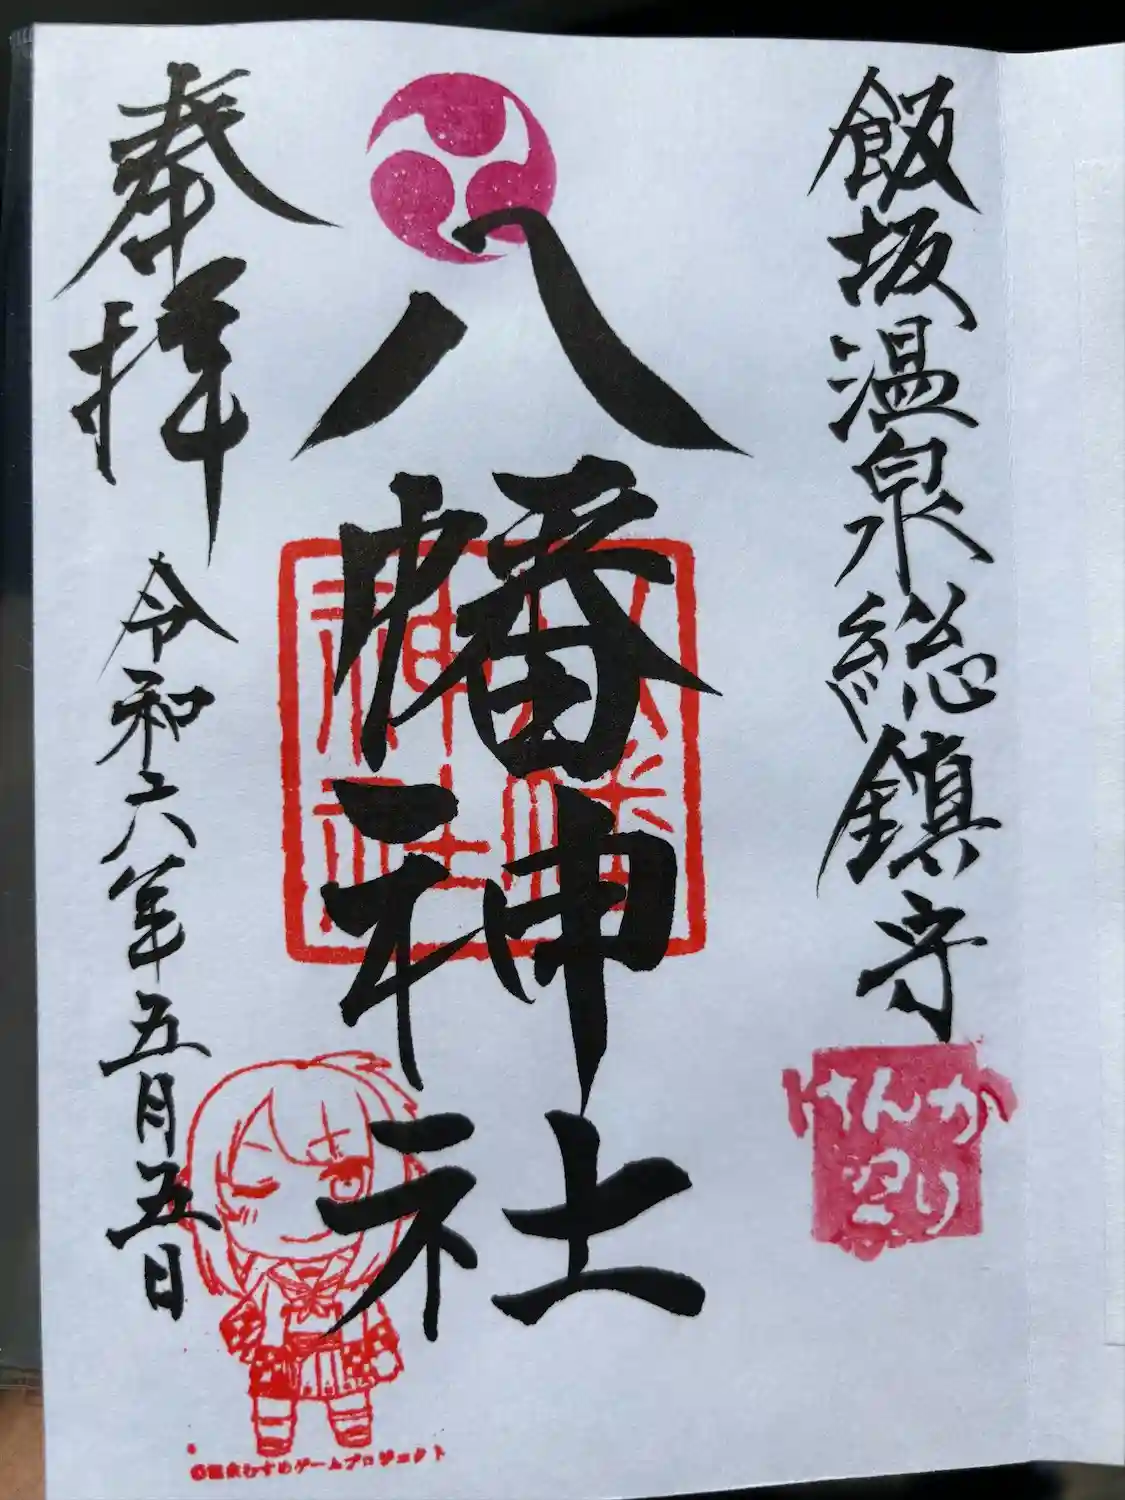 飯坂温泉総鎮守
けんか
祭り
八幡神社
八幡
神社
奉拝
令和六年五月五日
©温泉むすめゲームプロジェクト